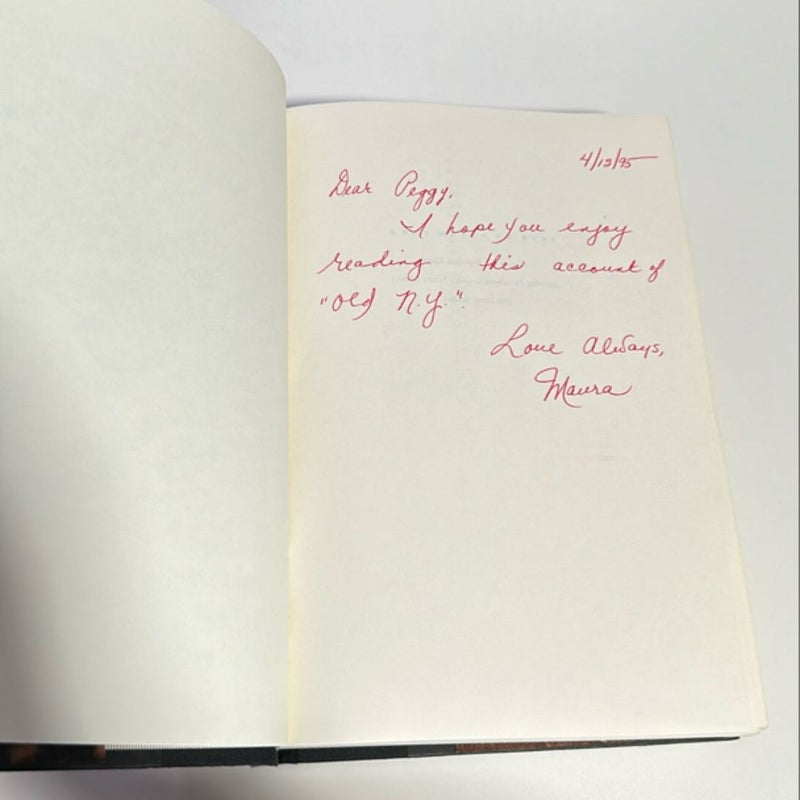 4/13/95
Dear Peggy,
I hope you enjoy
reading this account of
"Old N.Y."
Love Always,
Maura